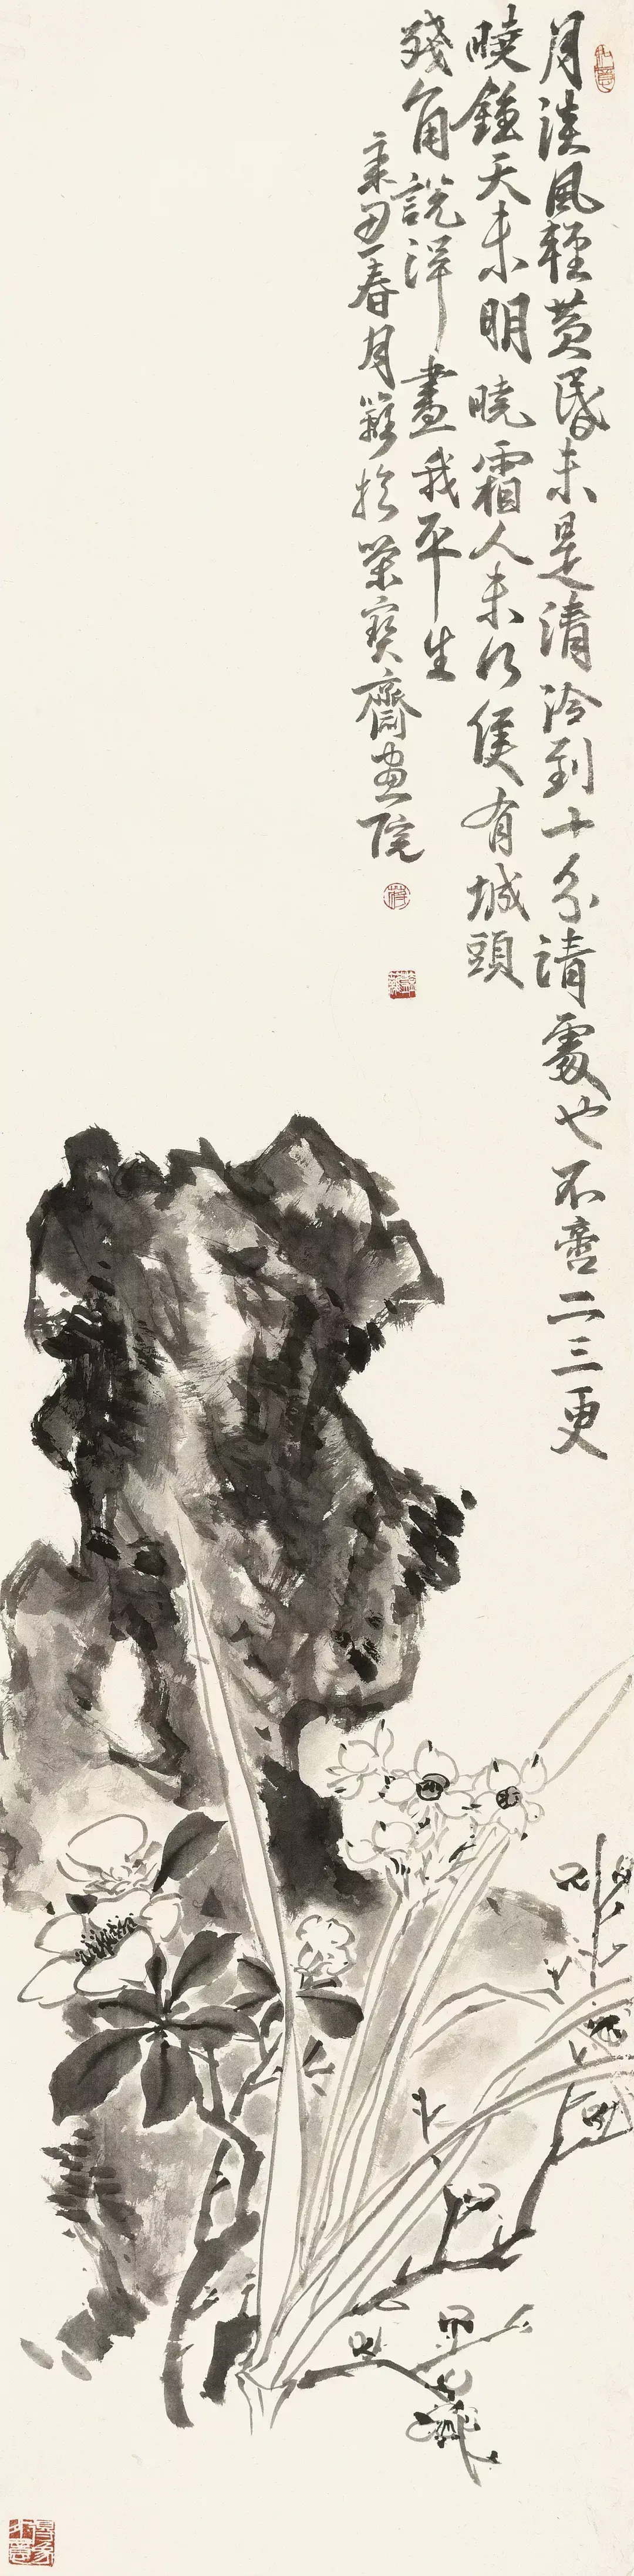 月淡風輕黃昏未是清冷到十分請處也不啻二三更
曉鐘天未明曉霜人未行僅有城頭
殘角說得盡我平生
辛丑春月籟於榮寶齋畫院